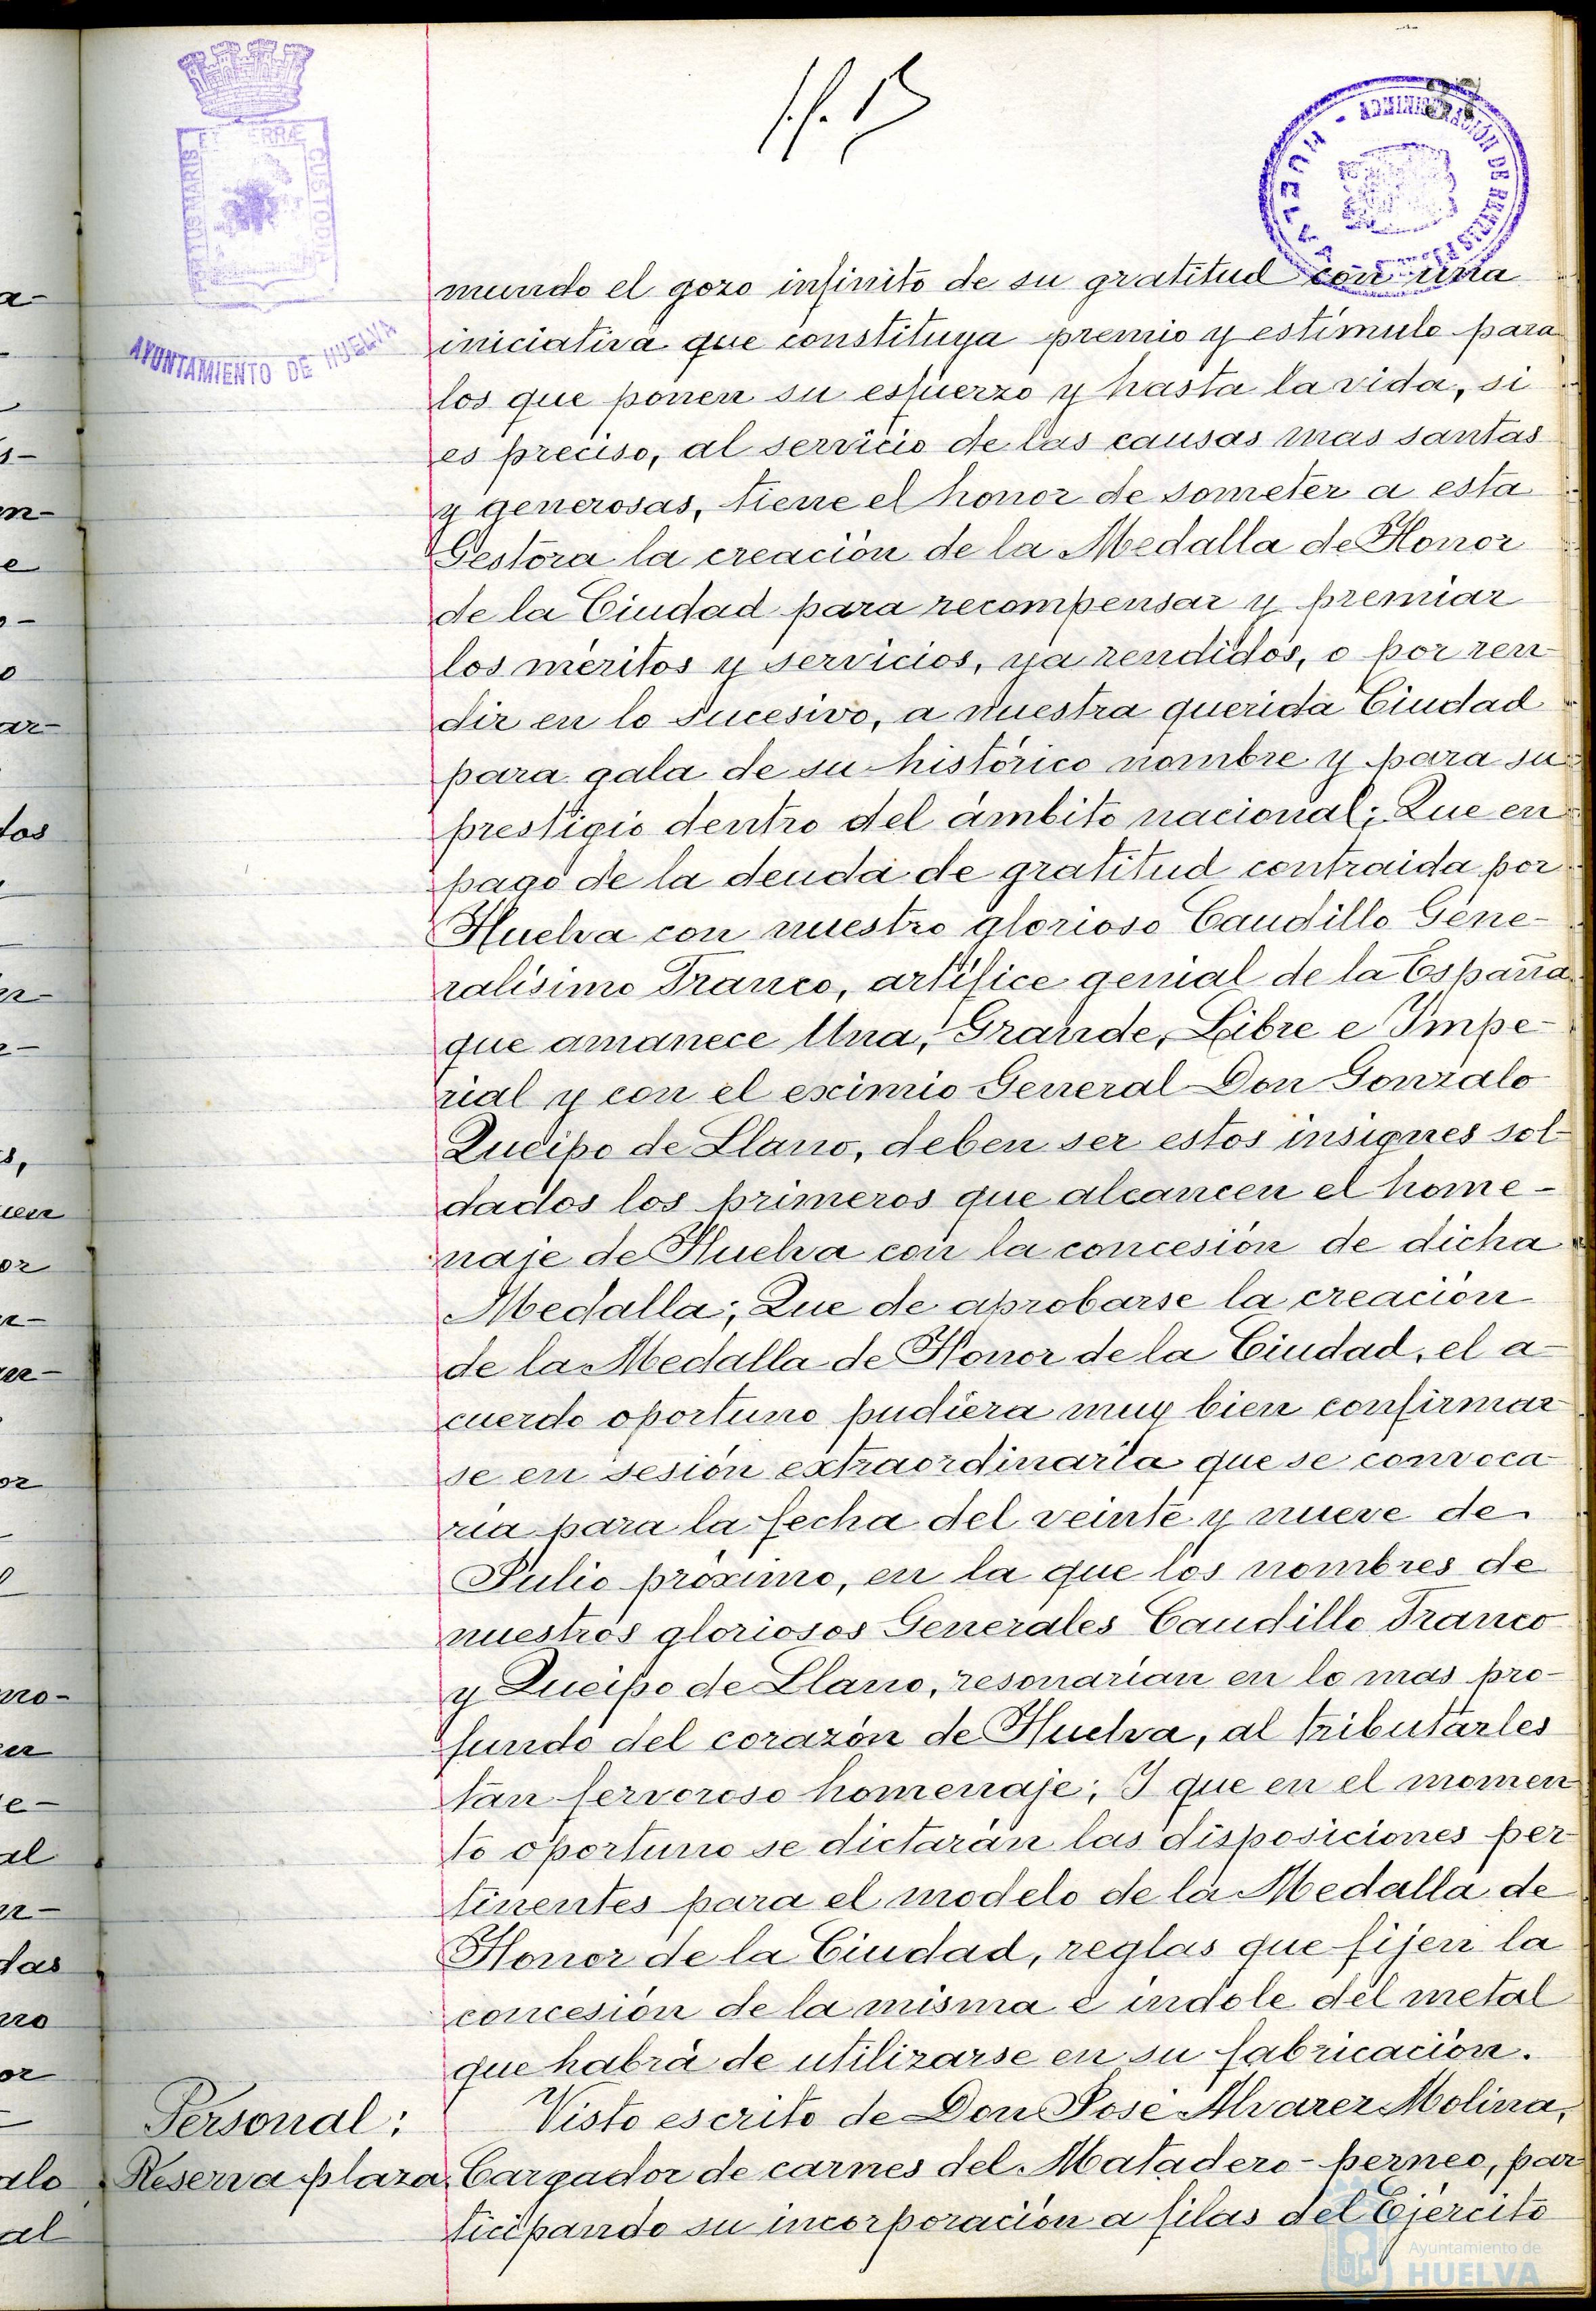 37
PORTUS MARIS ET TERRÆ CUSTODIA
AYUNTAMIENTO DE HUELVA
HUELVA - ADMINISTRACIÓN DE RENTAS
mundo el gozo infinito de su gratitud con una
iniciativa que constituya premio y estímulo para
los que ponen su esfuerzo y hasta la vida, si
es preciso, al servicio de las causas mas santas
y generosas, tiene el honor de someter a esta
Gestora la creación de la Medalla de Honor
de la Ciudad para recompensar y premiar
los méritos y servicios, ya rendidos, o por ren
dir en lo sucesivo, a nuestra querida Ciudad
para gala de su histórico nombre y para su
prestigio dentro del ámbito nacional; Que en
pago de la deuda de gratitud contraida por
Huelva con nuestro glorioso Caudillo Gene-
ralísimo Franco, artífice genial de la España
que amanece Una, Grande, Libre e Impe-
rial y con el eximio General Don Gonzalo
Queipo de Llano, deben ser estos insignes sol-
dados los primeros que alcancen el home-
naje de Huelva con la concesión de dicha
Medalla; Que de aprobarse la creación
de la Medalla de Honor de la Ciudad, el a-
cuerdo oportuno pudiera muy bien confirmar
se en sesión extraordinaria que se convoca
ría para la fecha del veinte y nueve de
Julio próximo, en la que los nombres de
nuestros gloriosos Generales Caudillo Franco
y Queipo de Llano, resonarían en lo mas pro-
fundo del corazón de Huelva, al tributarles
tan fervoroso homenaje; Y que en el momen
to oportuno se dictarán las disposiciones per
tinentes para el modelo de la Medalla de
Honor de la Ciudad, reglas que fijen la
concesión de la misma e índole del metal
que habrá de utilizarse en su fabricación.
Personal: Visto escrito de Don José Alvarez Molina,
Reserva plaza Cargador de carnes del Matadero-perneo, par
ticipando su incorporación a filas del Ejército
Ayuntamiento de
HUELVA